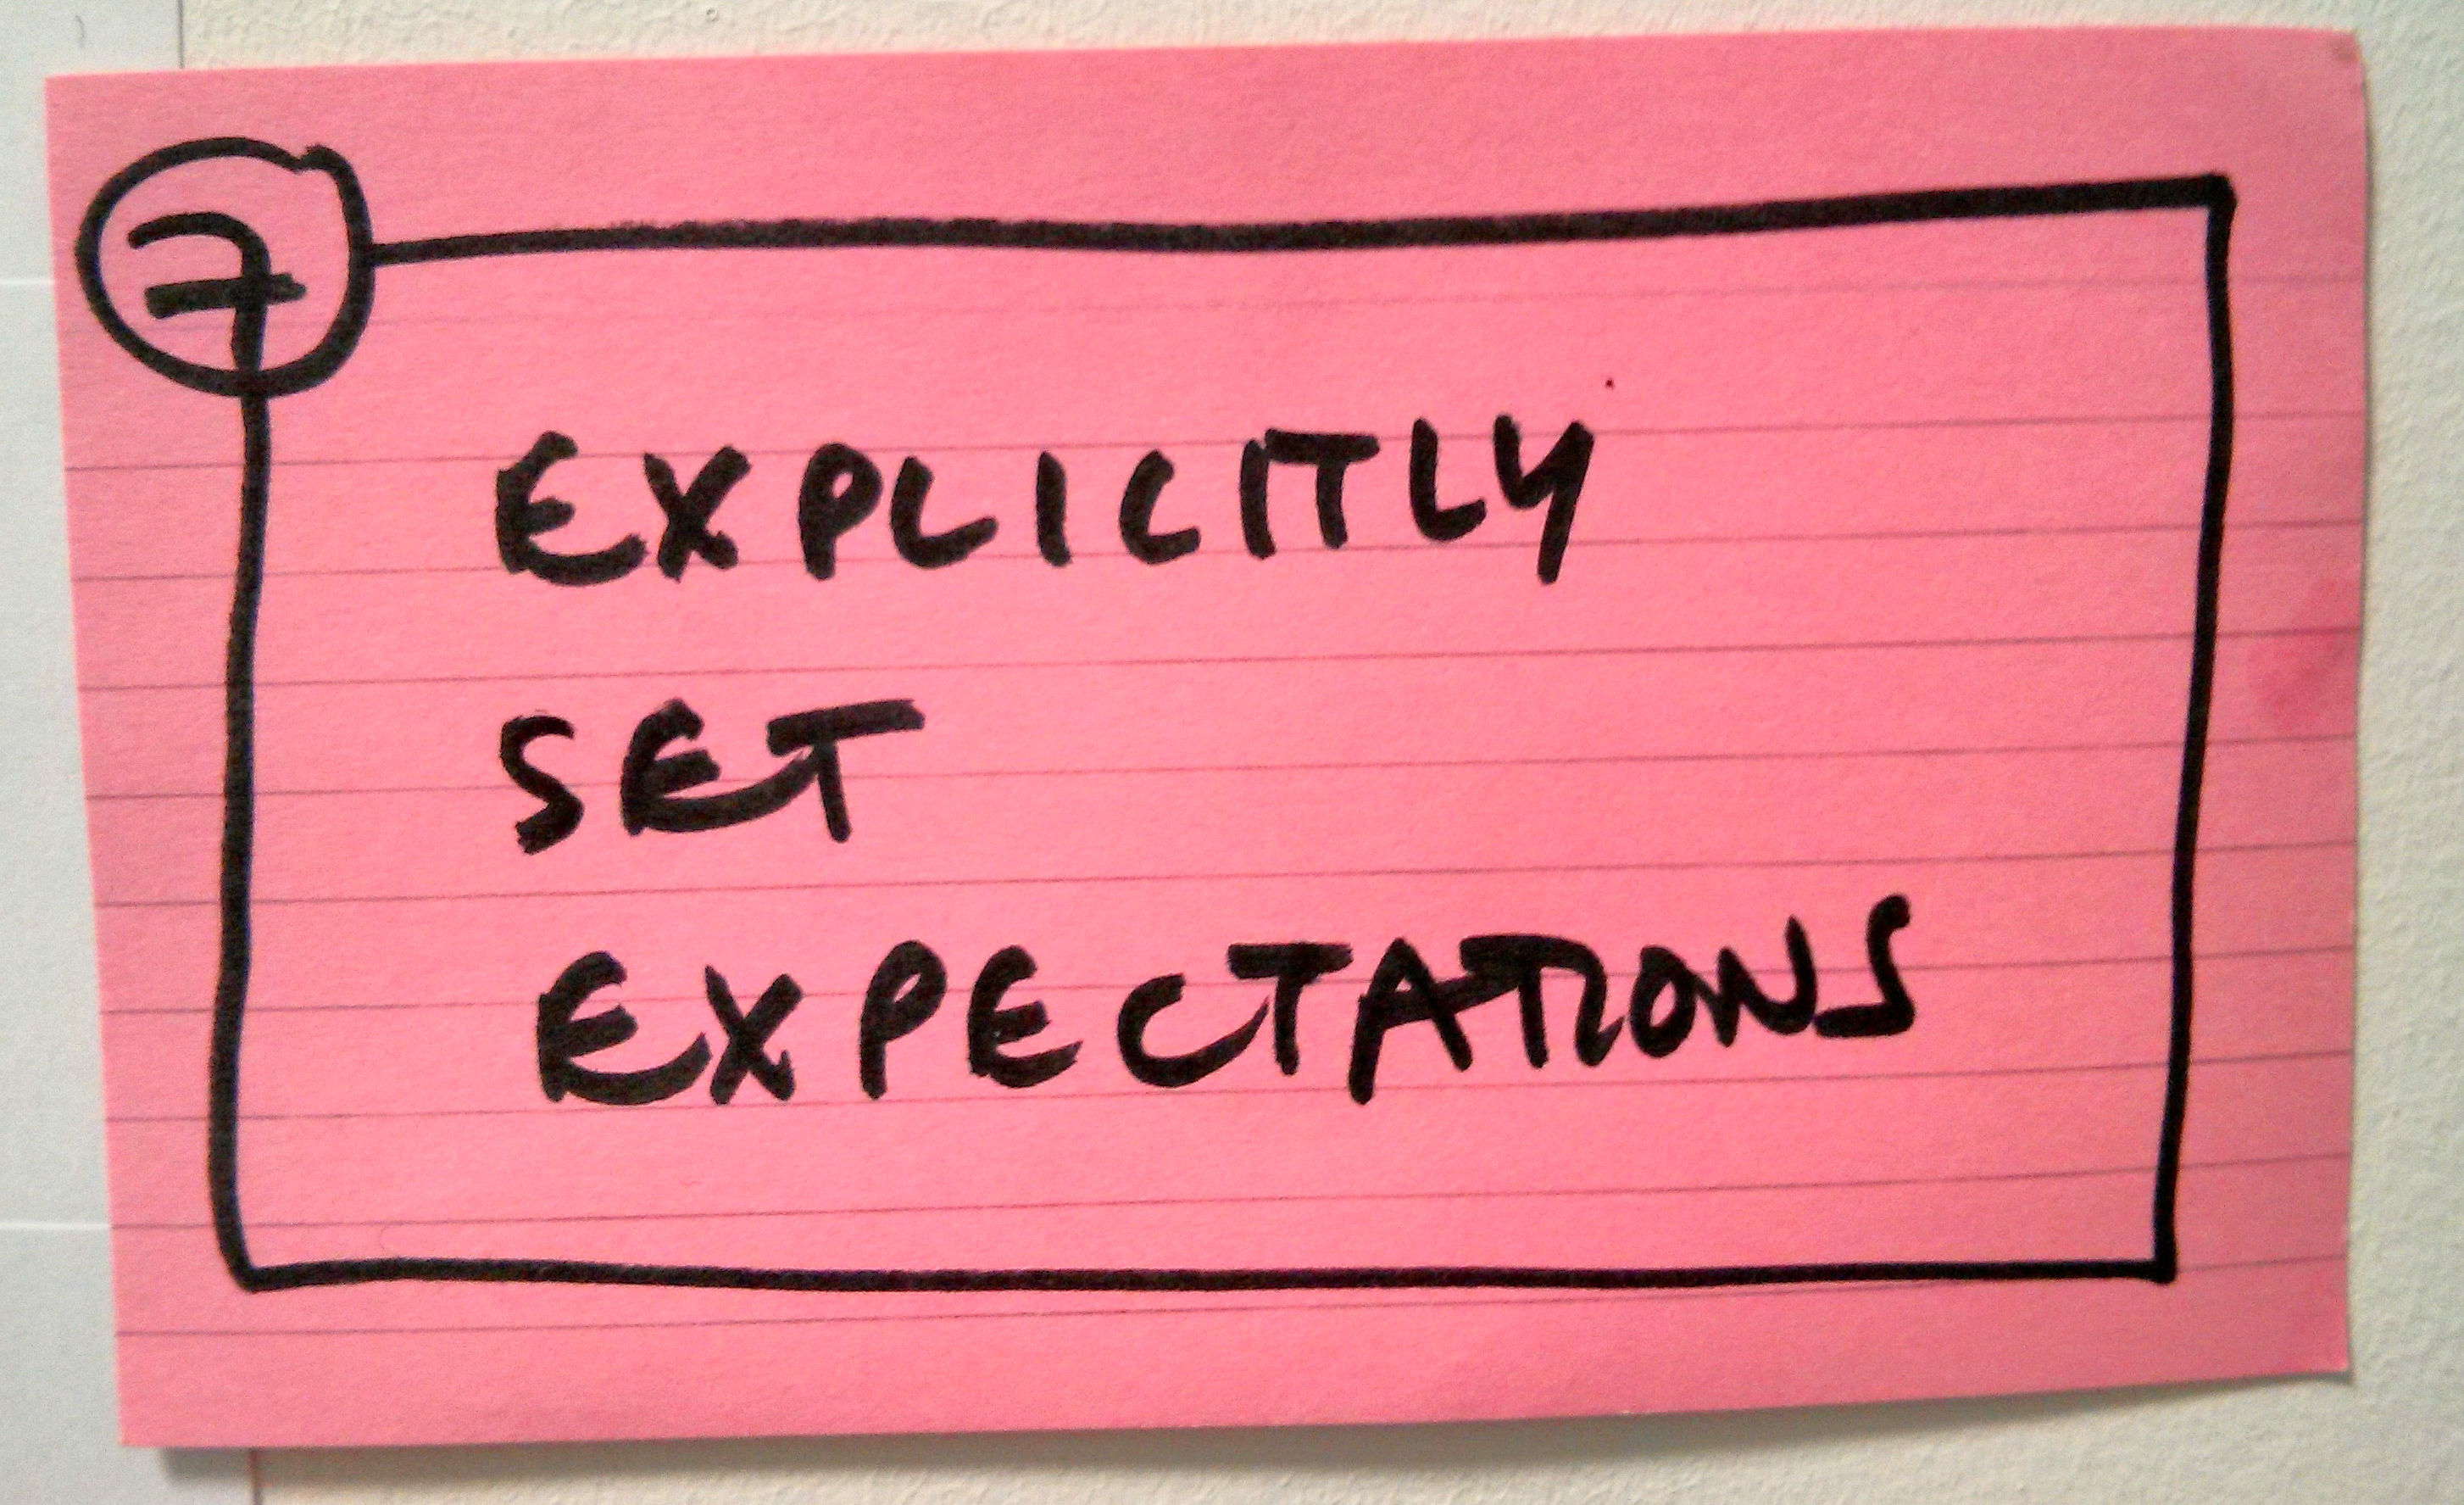 7
EXPLICITLY
SET
EXPECTATIONS